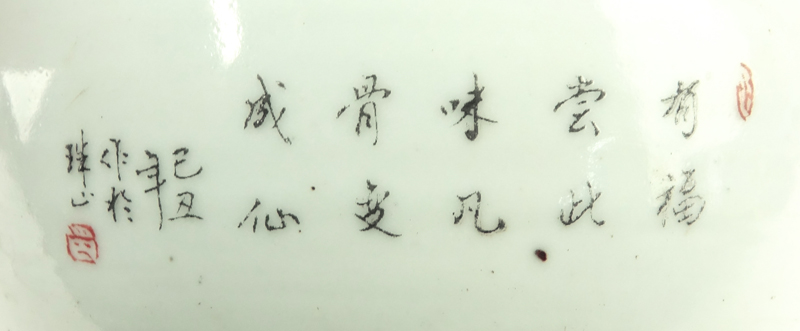 有福
尝此
味凡
骨变
成仙
己丑
年
作於
珠山